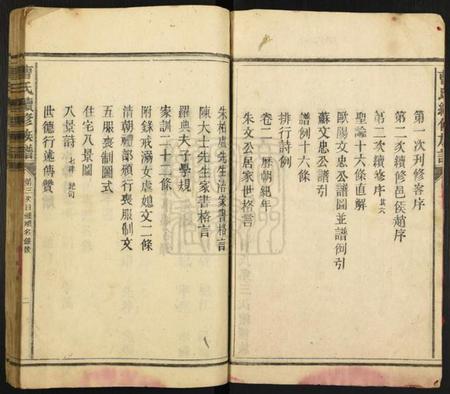 第一次刊修客序
第二次續修邑侯趙序
第二次續修序其六
聖諭十六條直解
歐陽文忠公譜圖並譜例引
蘇文忠公譜引
譜例十六條
排行詩例
卷二 歷朝紀年
朱文公居家世格言
朱柏廬先生治家書格言
陳大士先生家書格言
羅典夫子學規
家訓二十二條
附錄戒溺女虐媳文二條
清朝禮部頒行喪服制文
五服喪制圖式
住宅八景圖
八景詩 七律 絕句
世德行述傳贊
曹氏續修族譜
二